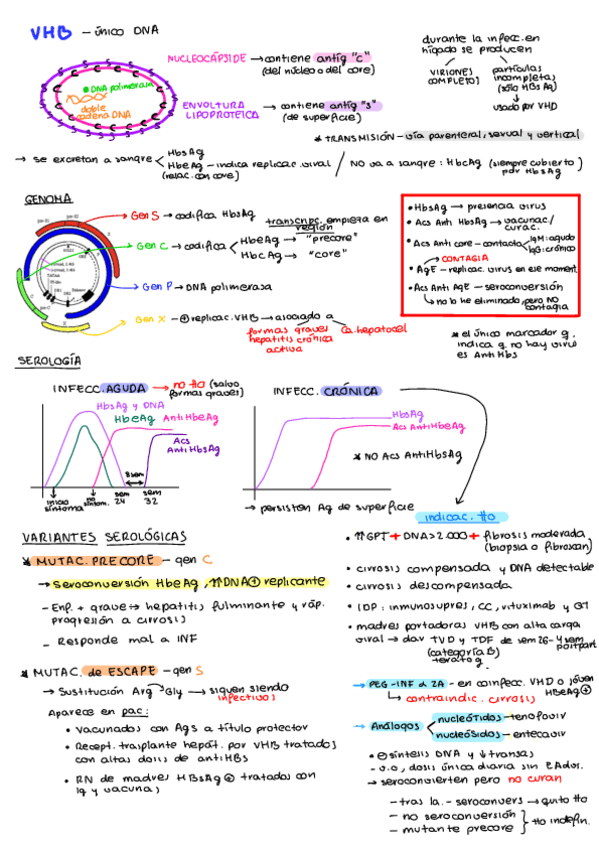 VHB - único DNA
NUCLEOCÁPSIDE → contiene antíg "c"
(del núcleo o del core)
DNA polimerasa
doble
cadena DNA
ENVOLTURA → contiene antíg "s"
LIPOPROTEICA (de superficie)
durante la infecc. en
hígado se producen
VIRIONES
COMPLETOS
partículas
incompletas
(sólo HBs Ag)
usado por VHD
* TRANSMISIÓN - vía parenteral, sexual y vertical
→ se excretan a sangre
HbsAg
HbeAg - indica replicac. viral
(relac. con core)
/ NO va a sangre: HbcAg (siempre cubierto
por HbsAg)
GENOMA
Gen S → codifica HbsAg
transcripc. empieza en
región
Gen C → codifica
HbeAg → "precore"
HbcAg → "core"
Gen P → DNA polimerasa
Gen X - ⊕ replicac. VHB → asociado a
formas graves
hepatitis crónica
activa
Ca. hepatocel
• HbsAg → presencia virus
• Acs Anti HbsAg → vacunac/
curac.
• Acs Anti core - contacto
IgM: agudo
IgG: crónico
CONTAGIA
• AgE - replicac. virus en ese moment
• Acs Anti AgE - seroconversión
no lo he eliminado, pero NO
contagia
* el único marcador q.
indica q no hay virus
es Anti Hbs
SEROLOGÍA
INFECC. AGUDA → no tto (salvo
formas graves)
HbsAg y DNA
HbeAg Anti HbeAg
Acs
Anti HbsAg
8 sem
inicio
síntoma
no
síntom.
sem
24
sem
32
INFECC. CRÓNICA
HbsAg
Acs Anti HbeAg
* NO Acs Anti HbsAg
→ persisten Ag de superficie
indicac. tto
• ⇈ GPT + DNA > 2.000 + fibrosis moderada
(biopsia o fibroscan)
• cirrosis compensada y DNA detectable
• cirrosis descompensada
• IDP: inmunosupres, CC, rituximab y
• madres portadoras VHB con alta carga
viral → dar TVD y TDF de sem 26 - 4 sem
postpart
(categoría B)
teratog.
VARIANTES SEROLÓGICAS
* MUTAC. PRECORE - gen C
→ Seroconversión HbeAg, ⇈ DNA ⊕ replicante
- Enf. + grave → hepatitis fulminante y ráp.
progresión a cirrosis
- Responde mal a INF
* MUTAC. de ESCAPE - gen S
→ Sustitución Arg → Gly → siguen siendo
infectivos
Aparece en pac:
• Vacunados con AgS a título protector
• Recept. trasplante hepát. por VHB tratados
con altas dosis de antiHBs
• RN de madres HBsAg ⊕ tratados con
Ig y vacunas
→ PEG-INF α 2A - en coinfecc. VHD o joven
HBeAg ⊕
contraindic. cirrosis
→ Análogos
nucleótidos - tenofovir
nucleósidos - entecavir
• ⊖ síntesis DNA y ↓ transas
- v.o, dosis única diaria sin EAdv.
→ seroconvierten pero no curan
- tras la - seroconvers → quito tto
- no seroconversión
- mutante precore
tto indefin.